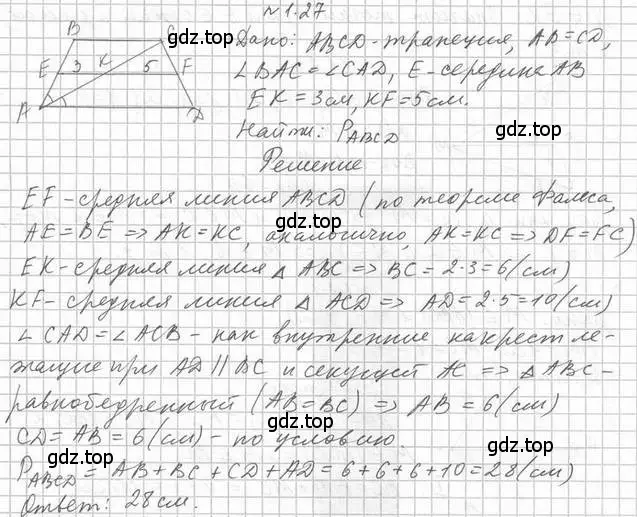 №1.27
B C
Дано: ABCD - трапеция, AB=CD,
E 3 K 5 F
∠BAC=∠CAD, E - середина AB
EK=3см, KF=5см.
A D
Найти: P_ABCD
Решение
EF - средняя линия ABCD (по теореме Фалеса,
AE=BE => AK=KC, аналогично, AK=KC => DF=FC)
EK - средняя линия △ ABC => BC=2·3=6(см)
KF - средняя линия △ ACD => AD=2·5=10(см)
∠CAD=∠ACB - как внутренние накрест ле-
жащие при AD∥BC и секущей AC => △ABC -
равнобедренный (AB=BC) => AB=6(см)
CD=AB=6(см) - по условию.
P_ABCD=AB+BC+CD+AD=6+6+6+10=28(см)
Ответ: 28см.
gdz.top
gdz.top
gdz.top
gdz.top
gdz.top
gdz.top
gdz.top
gdz.top